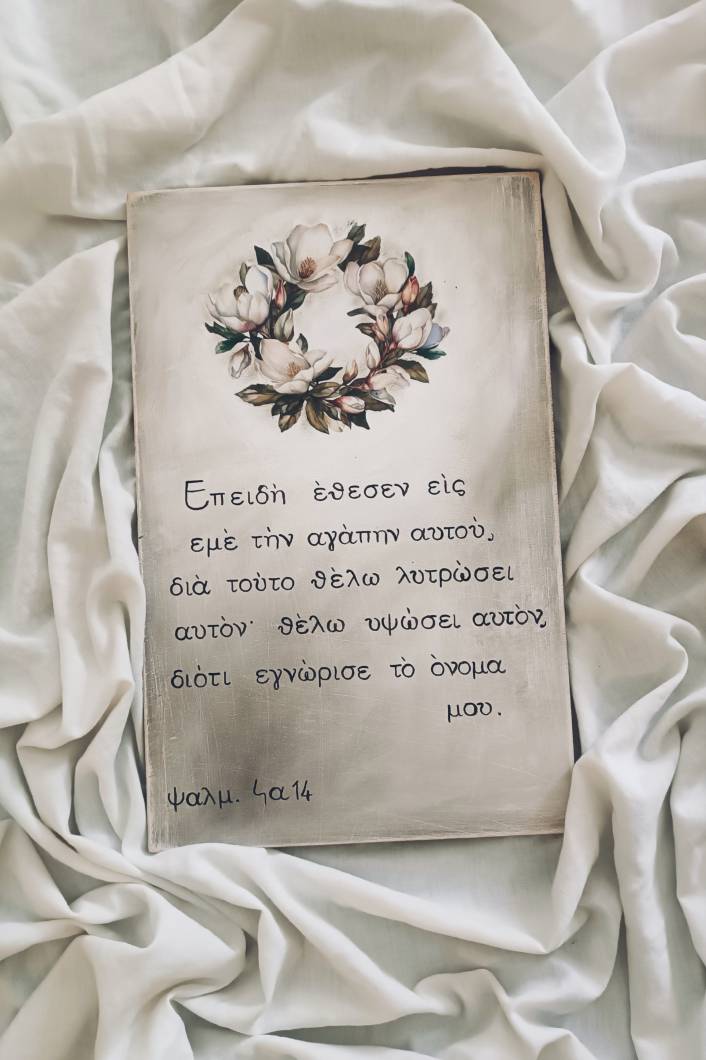 Επειδὴ ὲθεσεν εὶς
εμὲ τὴν αγὰπην αυτοὺ,
διὰ τοὺτο θὲλω λυτρὼσει
αυτὸν· θὲλω υψὼσει αυτὸν,
διὸτι εγνὼρισε τὸ ὸνομα
μου.
ψαλμ. ϟα14